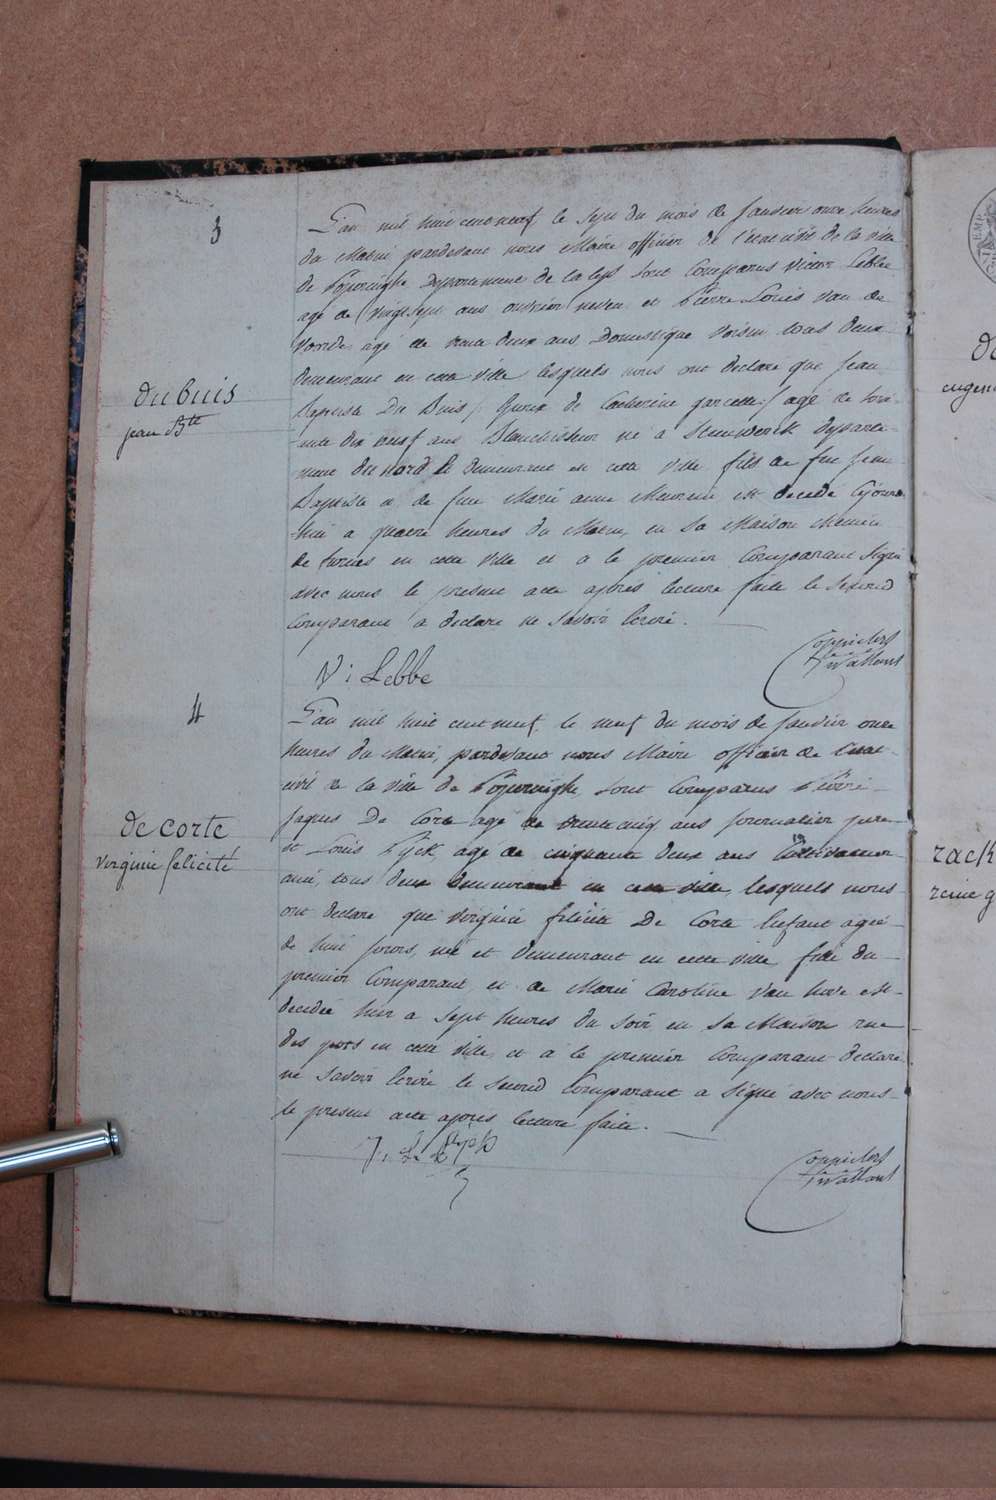 3
L'an mil huit cent neuf le sept du mois de Janvier onze heures
du Matin pardevant nous Maire officier de l'état civil de la ville
de Poperinghe Departement de la Lys sont Comparus Victor Lebbe
agé de vingt sept ans ouvrier neveu et Pierre Louis Van de
agé de trente deux ans Domestique voisin tous deux
demeurant en cette ville lesquels nous ont declaré que Jean
Baptiste Du Buis Epoux de Catherine garcette agé de soix-
ante dix neuf ans Blanchisseur né a Steenwerck departe-
ment du nord et demeurant en cette ville fils de feu Jean
Baptiste et de feue Marie anne est decedé ajourd
hui a quatre heures du Matin en sa Maison
de furnes en cette ville et a le premier Comparant signé
avec nous le present acte apres lecture faite le second
Comparant a declaré ne savoir ecrire.
dubuis
jean Bte
Vi Lebbe
4
L'an mil huit cent neuf le neuf du mois de Janvier onze
heures du Matin, pardevant nous Maire officier de l'etat
civil de la ville de Poperinghe sont Comparus Pierre
Jaques De Corte agé de trente cinq ans Journalier pere
et Louis agé de cinquante deux ans
ami, tous deux demeurant en cette ville, lesquels nous
ont declaré que Virginie felicité De Corte Enfant agée
de huit jours, née et demeurant en cette ville, fille du
premier Comparant, et de Marie Caroline Van hove est
decedée hier a sept heures du soir en sa Maison rue
des pots en cette ville, et a le premier Comparant declaré
ne savoir ecrire le second Comparant a signé avec nous
le present acte apres lecture faite.
de corte
virginie felicité
eugen
rack
reine g